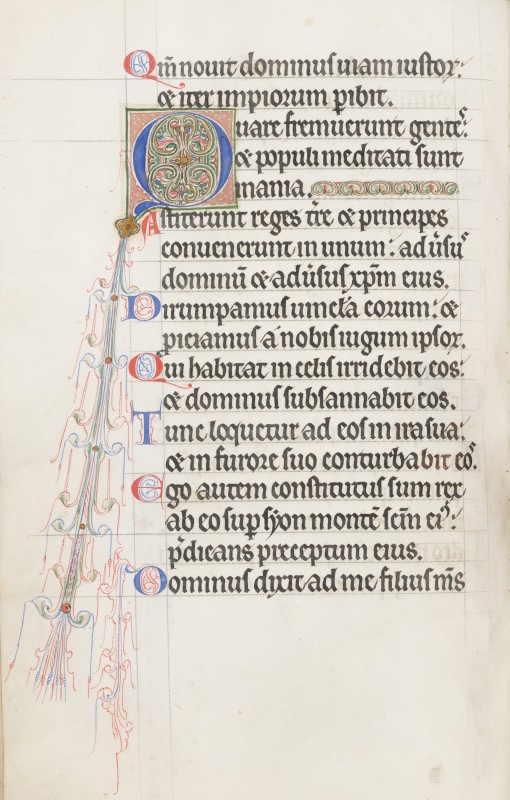 Qm̄ nouit dominus uiam iustor᷒:
& iter impiorum p̱ibit.
Quare fremuerunt genteˢ:
& populi meditati sunt
inania.
Astiterunt reges tr̄e & principes
conuenerunt in unum: adūsuˢ
dominū & adūsus xp̄m eius.
Dirumpamus uincl̄a eorum: &
piciamus a nobis iugum ipsor᷒.
Qui habitat in celis irridebit eos:
& dominus subsannabit eos.
Tunc loquetur ad eos in ira sua:
& in furore suo conturbabit eoˢ.
Ego autem constitutus sum rex
ab eo sup̱ syon montē sc̄m ei᷒:
p̄dicans preceptum eius.
Dominus dixit ad me filius m̄s